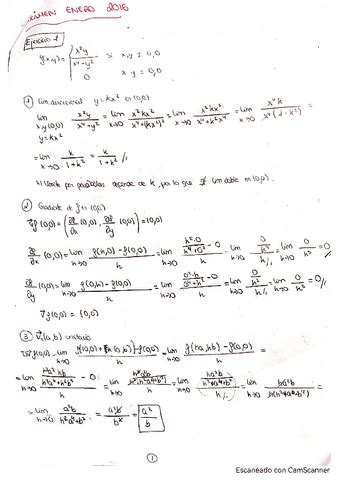 EXAMEN ENERO 2016
Ejercicio 1
f(x,y) = { x²y / x⁴+y² si x,y ≠ 0,0
0 x y = 0,0
1) Lim direccional y = kx² en (0,0)
lim x,y→(0,0) y=kx² x²y / x⁴+y² = lim x→0 x²kx² / x⁴+(kx²)² = lim x→0 x²kx² / x⁴+k²x⁴ = lim x→0 x⁴k / x⁴(1+k²) =
= lim x→0 k / 1+k² = k / 1+k² //
El límite por parábolas depende de k, por lo que ∄ lim doble en (0,0).
2) Gradiente de f en (0,0)
∇f(0,0) = (∂f/∂x (0,0), ∂f/∂y (0,0)) = (0,0)
∂f/∂x (0,0) = lim h→0 f(h,0) - f(0,0) / h = lim h→0 h²·0 / h⁴+0² - 0 / h = lim h→0 0/h⁴ / h/1 = lim h→0 0/h⁵ = 0 //
∂f/∂y (0,0) = lim h→0 f(0,h) - f(0,0) / h = lim h→0 0²·h / 0⁴+h² - 0 / h = lim h→0 0/h² / h/1 = lim h→0 0/h³ = 0 //
∇f(0,0) = (0,0)
3) v⃗(a,b) unitario
f(0,0) = lim h→0 f((0,0)+h(a,b)) - f(0,0) / h = lim h→0 f(ha,hb) - f(0,0) / h =
= lim h→0 h²a²hb / h⁴a⁴+h²b² - 0 / h = lim h→0 h³a²b / h²(h²a⁴+b²) / h = lim h→0 ha²b / h²a⁴+b² / h/1 = lim h→0 ha²b / h(h²a⁴+b²) =
= lim h→0 a²b / h²a⁴+b² = a²b / b² = a² / b
1
Escaneado con CamScanner